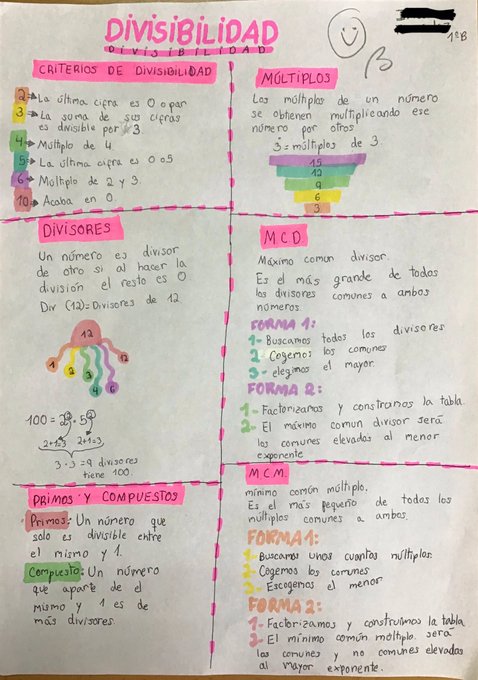 DIVISIBILIDAD
DIVISIBILIDAD
1ºB
B
CRITERIOS DE DIVISIBILIDAD
2 La última cifra es 0 o par
3 La suma de sus cifras
es divisible por 3
4 Múltiplo de 4
5 La última cifra es 0 o 5
6 Múltiplo de 2 y 3.
10 Acaba en 0
MÚLTIPLOS
Los múltiplos de un número
se obtienen multiplicando ese
número por otros
3 = múltiplos de 3.
15
12
9
6
3
DIVISORES
Un número es divisor
de otro si al hacer la
división el resto es 0.
Div (12)=Divisores de 12
12
1 2 3 4 6 12
100 = 2² · 5²
2+1=3 2+1=3
3 · 3 = 9 divisores
tiene 100.
MCD
Máximo comun divisor.
Es el más grande de todos
los divisores comunes a ambos
números.
FORMA 1:
1- Buscamos todos los divisores
2- Cogemos los comunes
3- elegimos el mayor.
FORMA 2:
1- Factorizamos y construimos la tabla.
2- El máximo comun divisor será
los comunes elevados al menor
exponente
PRIMOS Y COMPUESTOS
Primos: Un número que
solo es divisible entre
el mismo y 1.
Compuesto: Un número
que aparte de el
mismo y 1 es de
más divisores.
M.C.M.
mínimo común múltiplo.
Es el más pequeño de todos los
múltiplos comunes a ambos.
FORMA 1:
1- Buscamos unos cuantos múltiplos.
2- Cogemos los comunes
3- Escogemos el menor
FORMA 2:
1- Factorizamos y construimos la tabla
2- El mínimo común múltiplo será
los comunes y no comunes elevados
al mayor exponente.